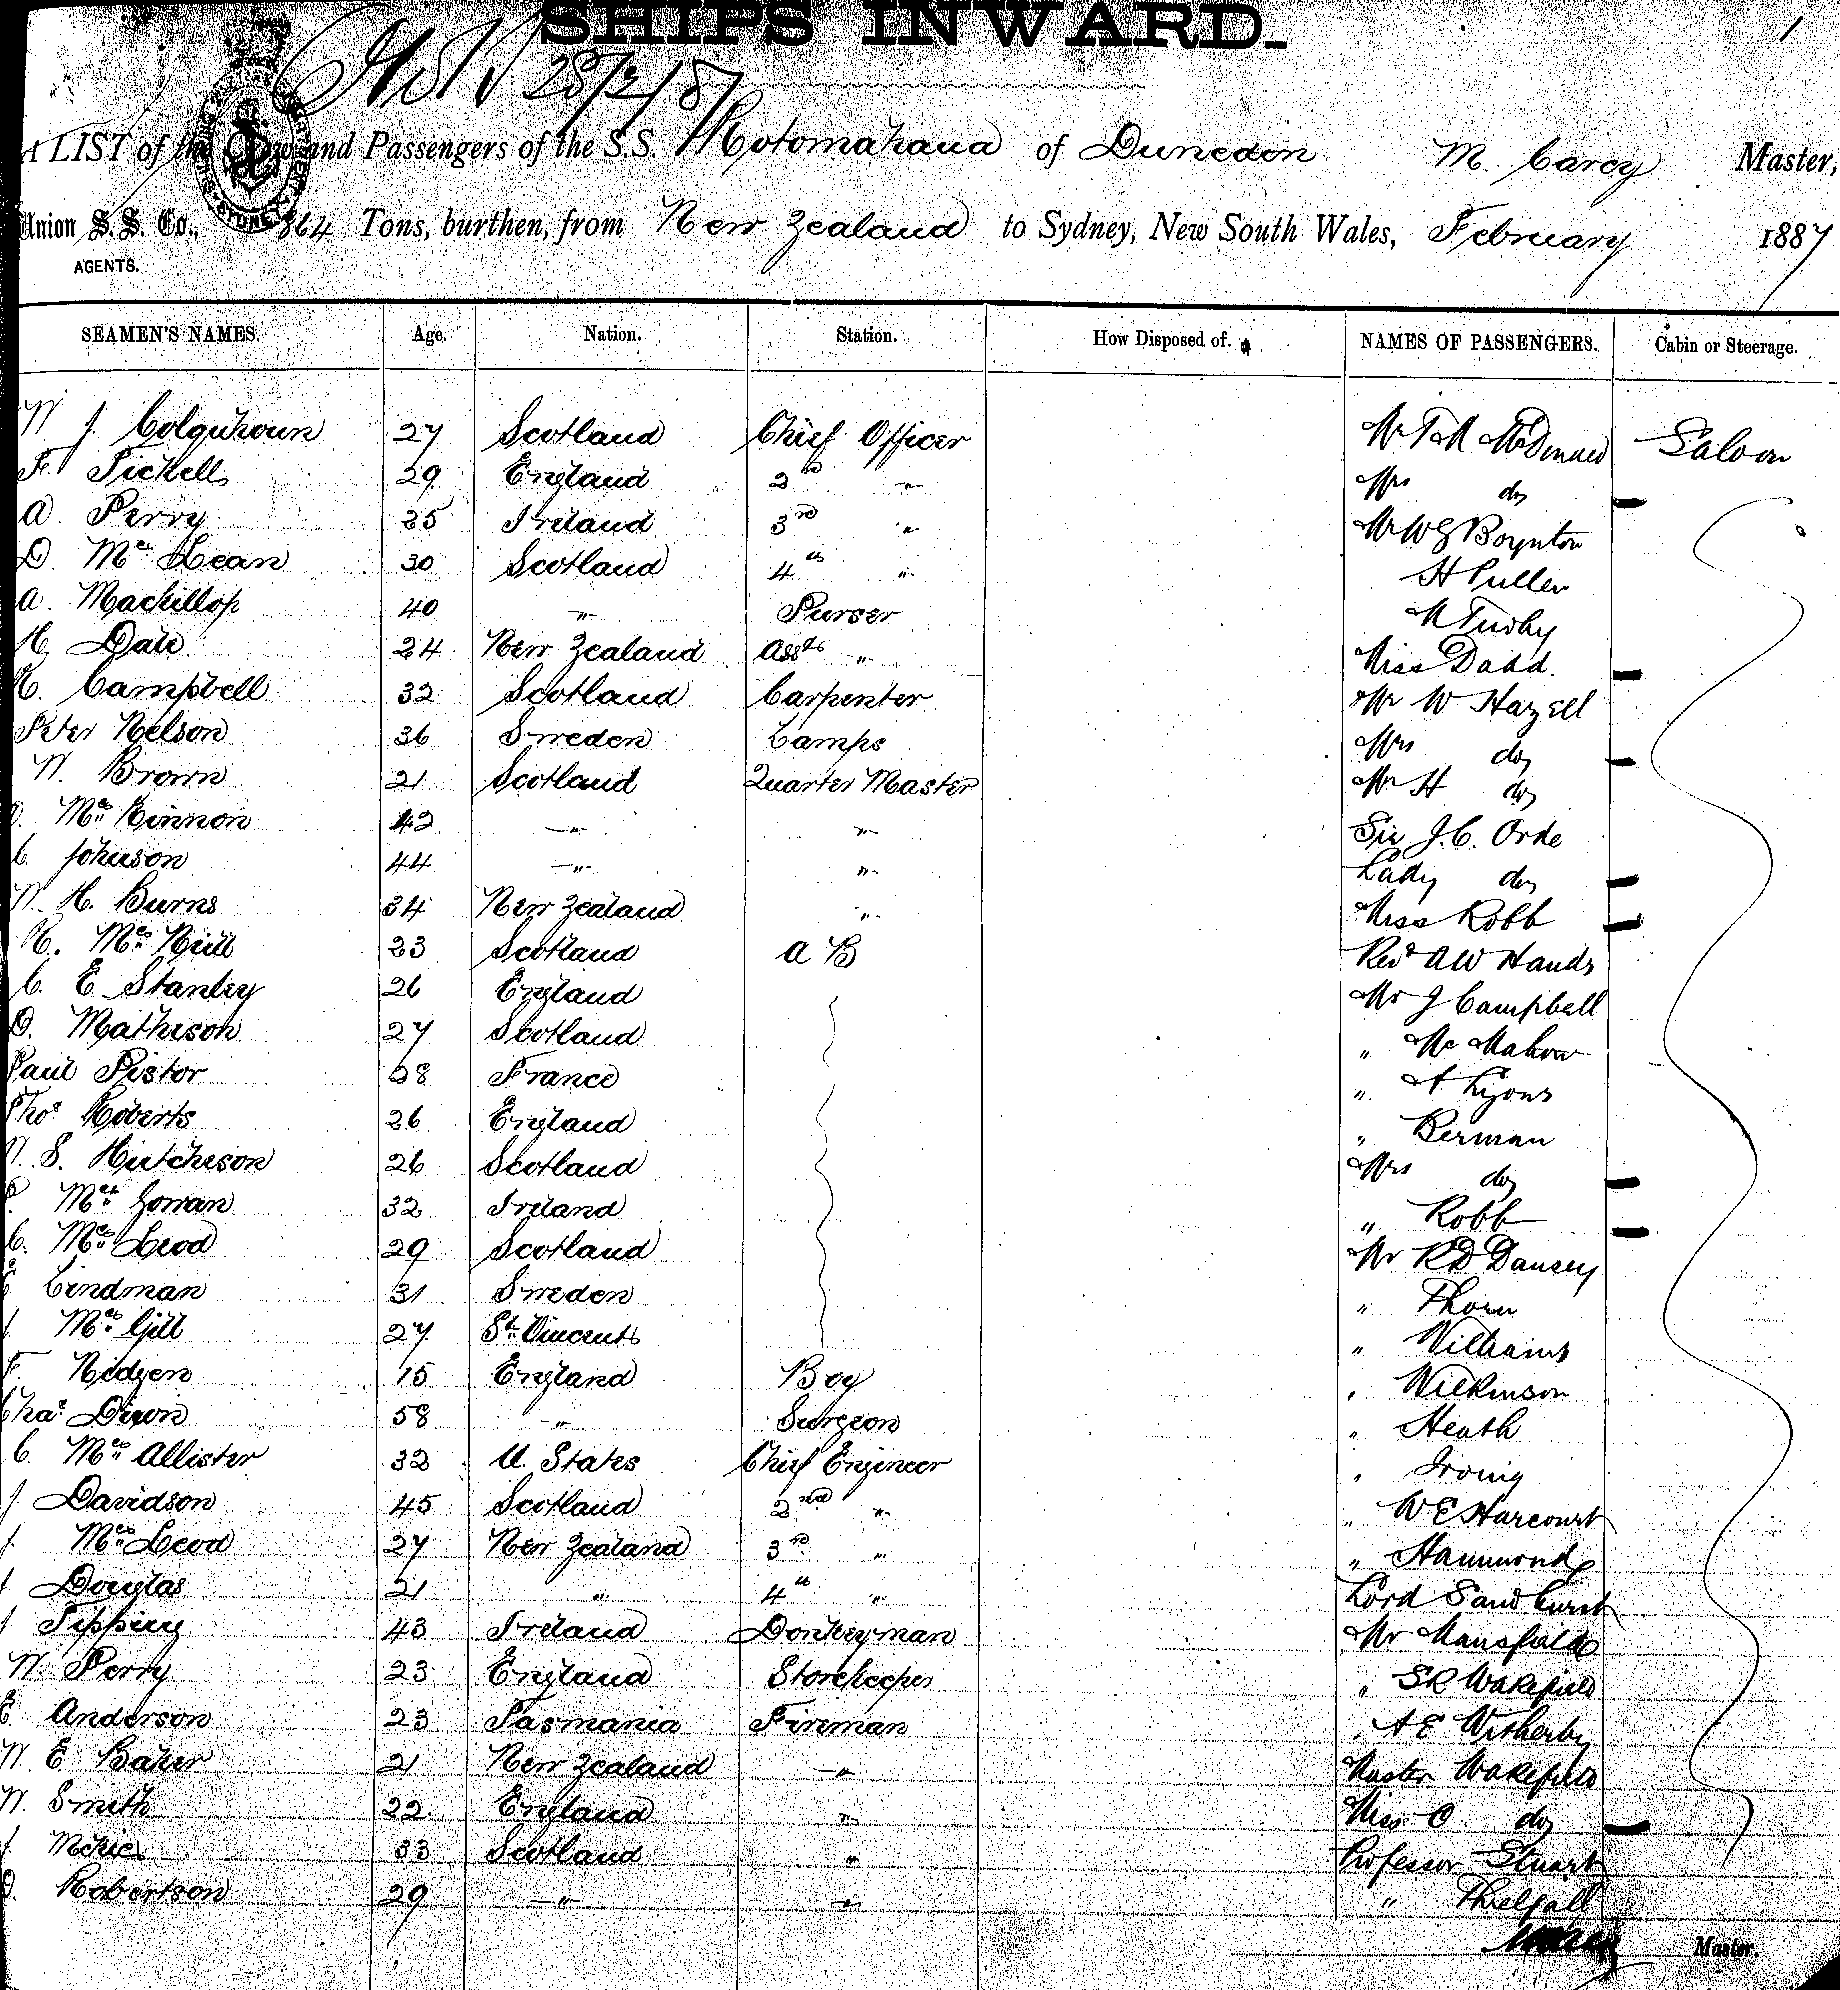 SHIPS INWARD.
28/2/87
A LIST of the Crew and Passengers of the S.S. Rotomahana of Dunedin M. Carey Master,
Union S. S. Co., 864 Tons, burthen, from New Zealand to Sydney, New South Wales, February 1887
AGENTS.
SEAMEN'S NAMES. Age. Nation. Station. How Disposed of. NAMES OF PASSENGERS. Cabin or Steerage.
W J. Colquhoun 27 Scotland Chief Officer Mr McDonald Saloon
F. Tickell 29 England 2nd " Mrs do
A. Perry 25 Ireland 3rd " Mr W G Boynton
D. McLean 30 Scotland 4th " H Puller
A. Mackillop 40 " Purser
H. Dale 24 New Zealand Asst " Miss Dadd.
C. Campbell 32 Scotland Carpenter Mr W Hazell
Peter Nelson 36 Sweden Lamps Mrs do
W. Brown 21 Scotland Quarter Master Mr H do
McKinnon 42 " " Sir J. C. Orde
C. Johnson 44 " " Lady do
W. H. Burns 34 New Zealand " Miss Robb
H. McNeill 23 Scotland A B Revd A W Hands
C. E Stanley 26 England Mr J Campbell
D. Matheson 27 Scotland " McMahon
Paul Pistor 28 France " A Lyons
Thos Roberts 26 England " Berman
W. S. Hutcheson 26 Scotland Mrs do
McGowan 32 Ireland " Robb
C. McLeod 29 Scotland Mr R D Dansey
Lindman 31 Sweden " Thorn
J. McGill 27 St Vincents " Williams
F. Hodgen 15 England Boy " Wilkinson
Chas Dixon 58 " Surgeon " Heath
C. McAllister 32 U. States Chief Engineer " Irving
J. Davidson 45 Scotland 2nd " " W E Harcourt
J. McLeod 27 New Zealand 3rd " " Hammond
J Douglas 21 " 4th " Lord Sandhurst
J Tipping 43 Ireland Donkeyman Mr Mansfield
W. Perry 23 England Storekeeper " S R Wakefield
E. Anderson 23 Tasmania Fireman " A E Witherby
W. E Baker 21 New Zealand " Master Wakefield
W. Smith 22 England " Miss O do
J. McKie 33 Scotland " Professor Stuart
D. Robertson 29 " " " Threlfall
Master.